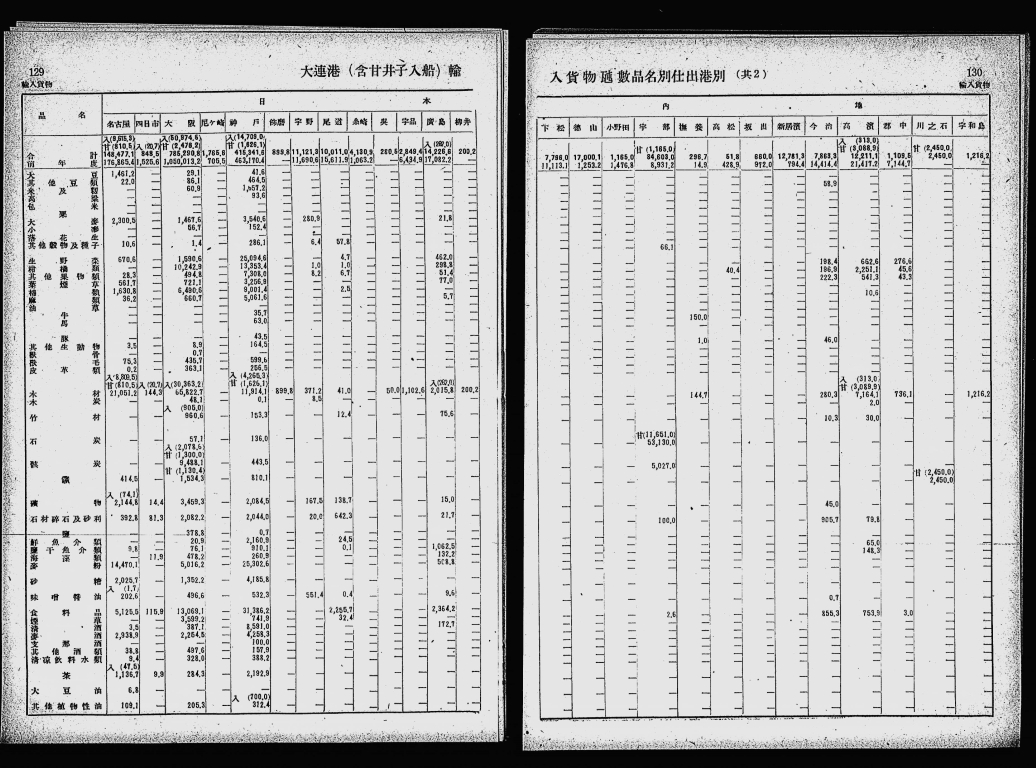 129
輸入貨物
大連港（含甘井子入船）輸
品名
日本
名古屋 四日市 大阪 尼ケ崎 神戸 飾磨 宇野 尾道 糸崎 呉 宇品 廣島 柳井
合計
前年度
大豆 1,461.2 29.1 41.6
其他豆類 22.0 86.1 464.5
米及籾 60.9
高粱 93.6
包米
粟
大麥 2,300.5 1,467.6 3,540.6 280.9 21.8
小麥 56.7 152.4
落花生
其他穀物及種子 10.6 1.4 286.1 6.4 57.8
生野菜 670.6 1,590.6 25,094.6 4.7 462.0
柑橘類 10,242.9 13,353.4 1.0 1.0 298.8
其他果物類 28.3 494.8 7,308.0 8.2 6.7 51.4
葉煙草 561.7 721.1 3,256.9 77.0
棉類 1,630.8 6,490.6 9,001.4 2.5
麻類 36.2 660.7 5,061.6 5.7
油草
牛 35.7
馬 63.0
豚 43.5
其他生動物 3.5 8.9 164.5
獸骨 0.7
獸毛 75.3 435.7 599.6
皮革類 0.2 363.1 256.5
入(8,809.5) 入(4,265.3)
甘(810.5) 入(20.7) 入(30,363.2) 甘(1,626.1) 入(292.0)
木材 21,051.2 144.3 65,822.7 11,914.1 899.8 371.2 41.0 50.0 1,102.6 2,015.8 200.2
木炭 48.1 0.1 8.5
入(905.0)
竹材 960.6 153.3 12.4 75.6
石炭 57.1 136.0
入(2,078.6)
甘(1,300.0)
骸炭 9,488.1 443.5
甘(1,130.4)
鐵 414.5 1,534.3 810.1
入(74.1)
礦物 2,144.8 14.4 3,459.3 2,084.5 167.5 138.7 15.0
石材碎石及砂利 392.8 81.3 2,082.2 2,044.0 20.0 642.3 21.7
鹽 378.8 0.7
鮮魚介類 20.9 2,160.9 24.5
鹽干魚介類 9.8 76.1 910.1 0.1 1,062.5
海藻類 11.9 478.2 260.9 132.2
麥粉 14,470.1 5,016.2 25,302.6
砂糖 2,025.7 1,352.2 4,185.8
入(1.7)
味噌醬油 202.6 496.6 532.3 551.4 0.4 9.6
食料品 5,125.5 115.9 13,069.1 31,386.2 2,255.7 2,364.2
煙草 3,599.2 741.9 32.4
清酒 3.5 387.1 8,591.0 172.7
麥酒 2,938.9 2,254.5 4,258.3
支那酒 100.0
其他酒類 38.8 497.6 157.9
清凉飲料水類 9.4 328.0 388.2
入(47.5)
茶 1,136.7 9.9 284.3 2,192.9
大豆油 6.8
入(700.0)
其他植物性油 109.1 205.3 312.4
入貨物噸數品名別仕出港別（共2）
130
輸入貨物
內地
下松 德山 小野田 宇部 撫養 高松 坂出 新居濱 今治 高濱 郡中 川之石 宇和島
入(313.0)
甘(1,165.0) 甘(3,088.9) 甘(2,450.0)
7,796.0 17,000.1 1,165.0 84,603.0 296.7 51.8 660.0 12,781.3 7,863.3 12,211.1 1,109.5 2,450.0 1,216.2
11,113.1 1,253.2 1,476.8 8,931.2 14.9 428.9 972.0 794.4 14,414.4 21,417.2 7,144.7
58.9
66.1
198.4 662.6 276.6
40.4 196.9 2,251.1 45.6
222.3 541.3 43.3
10.6
150.0
1.0 46.0
入(313.0)
甘(3,089.9)
144.7 280.3 7,164.1 736.1 1,216.2
2.0
10.3 30.0
甘(11,651.0)
53,130.0
5,027.0
甘(2,450.0)
2,450.0
45.0
100.0 905.7 79.8
65.0
148.3
0.7
2.6 855.3 753.9 3.0